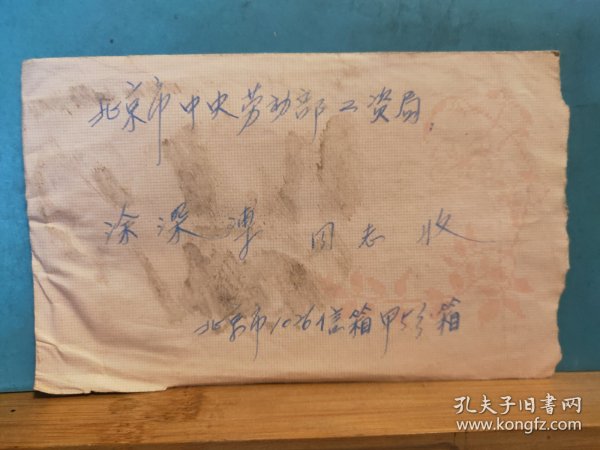 北京市中央劳动部工资局
涂深溥 同志 收
北京市1026信箱甲5号箱
孔夫子旧书网
www.kongfz.com